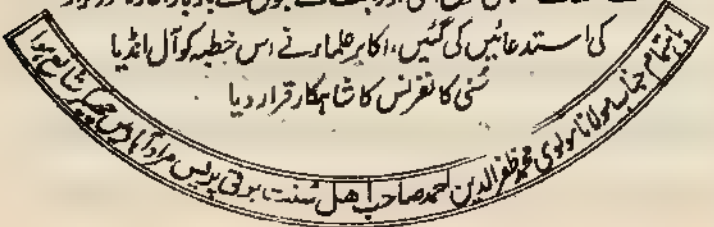 کی استدعائیں کی گئیں، اکابر علماء نے اس خطبہ کو آل انڈیا
سُنّی کانفرنس کا شاہکار قرار دیا
باہتمام جناب مولانا مولوی محمد ظفر الدین احمد صاحب اہل سنت برقی پریس مرادآباد میں چھپکر شائع ہوا